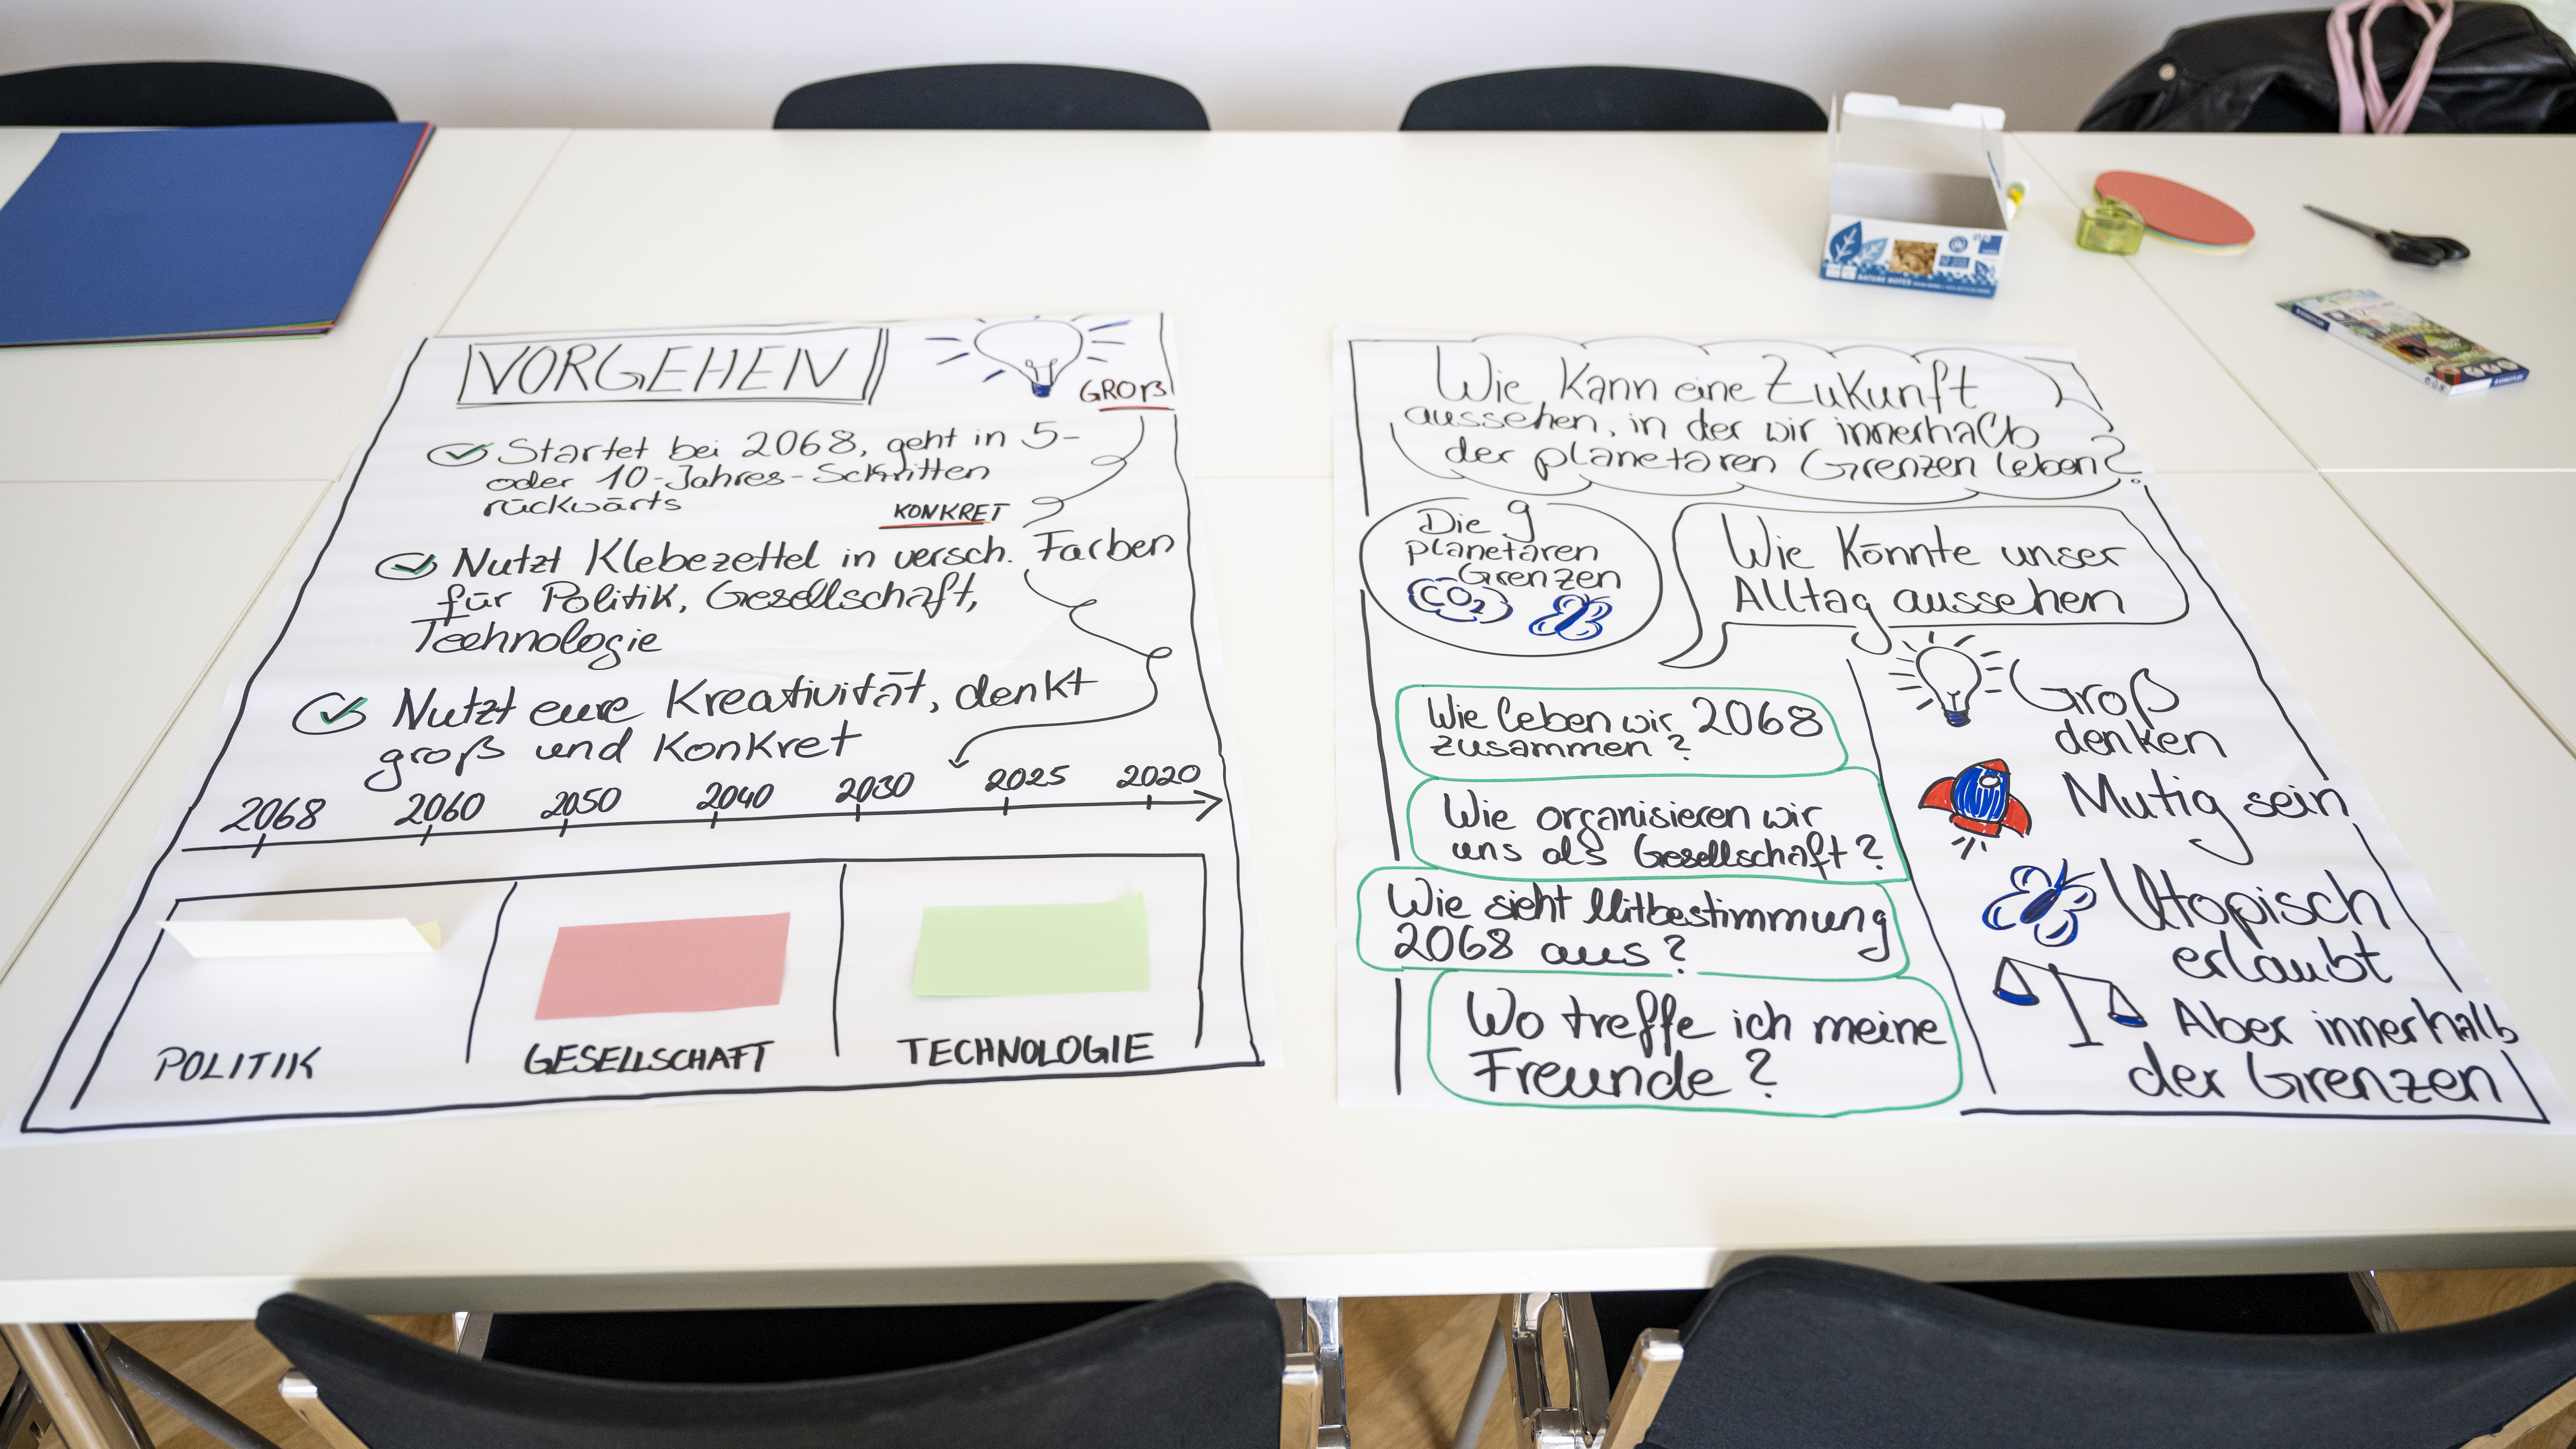 VORGEHEN
GROß
Startet bei 2068, geht in 5-
oder 10-Jahres-Schritten
rückwärts
KONKRET
Nutzt Klebezettel in versch. Farben
für Politik, Gesellschaft,
Technologie
Nutzt eure Kreativität, denkt
groß und konkret
2068 2060 2050 2040 2030 2025 2020
POLITIK GESELLSCHAFT TECHNOLOGIE
Wie kann eine Zukunft
aussehen, in der wir innerhalb
der planetaren Grenzen leben?
Die 9
planetaren
Grenzen
CO2
Wie könnte unser
Alltag aussehen
Wie leben wir 2068
zusammen?
Wie organisieren wir
uns als Gesellschaft?
Wie sieht Mitbestimmung
2068 aus?
Wo treffe ich meine
Freunde?
Groß
denken
Mutig sein
Utopisch
erlaubt
Aber innerhalb
der Grenzen